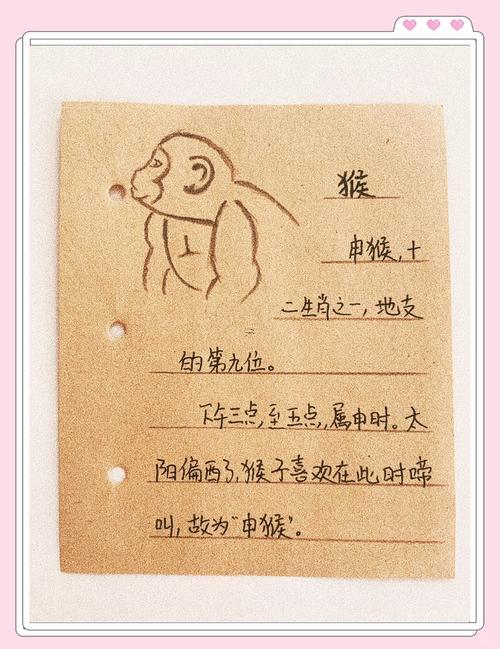 猴
申猴,十
二生肖之一,地支
的第九位。
下午三点,至五点,属申时。太
阳偏西了,猴子喜欢在此时啼
叫,故为“申猴”。